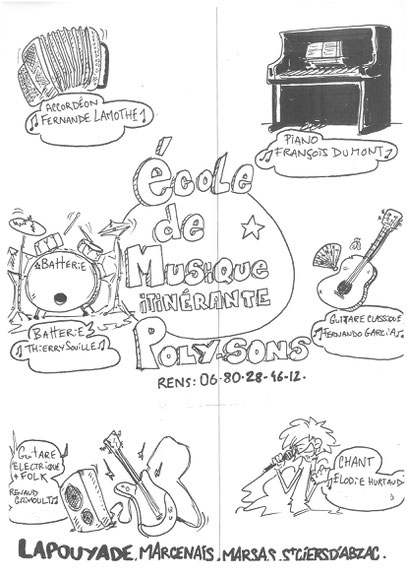 ACCORDÉON
FERNANDE LAMOTHE
PIANO
FRANÇOIS DUMONT
ÉCOLE
de
MUSIQUE
ITINÉRANTE
POLY-SONS
RENS: 06-80-28-46-12.
BATTERIE
BATTERIE
THIERRY SOUILLE
GUITARE CLASSIQUE
FERNANDO GARCIA
GUITARE
ELECTRIQUE
+ FOLK
RENAUD
CHANT
ELODIE HURTAUD
LAPOUYADE, MARCENAIS, MARSAS, ST CIERS D'ABZAC.